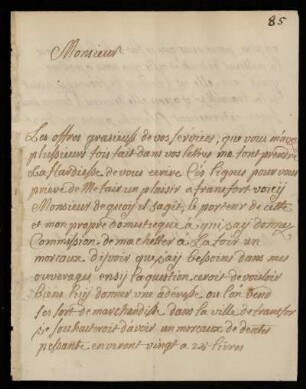 85
Monsieur
Les offres gratieuse de vos services, que vous m'avez
plussieurs fois fait dans vos lettres me font prendre
La Hardiesse de vous ecrire Ces lignes pour vous
prier de Me fair un plaisir a francfort voicy
Monsieur de quoy il sagit, le porteur de cette
et mon propre domestique a qui jay donnez
Commission de macheller a La foir un
morceaux d'jvoir que jay bessoins dans mes
ouverages ensy la question ceroit de vouloir
biens luy donner une adresse ou l'on vend
ses sort de marchandise dans la ville de francfor
je souhaitroit davoir un morceaux de dents
pessante environt vingt a 24 livres